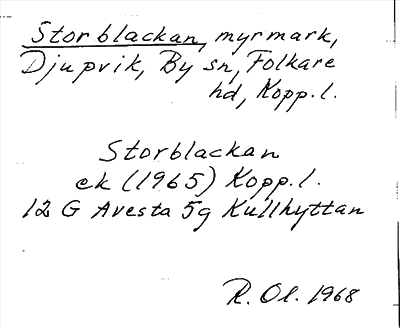 Storblackan, myrmark,
Djupvik, By sn, Folkare
hd, Kopp.l.
Storblackan
ek (1965) Kopp.l.
12 G Avesta 5g Kullhyttan
R. Ol. 1968